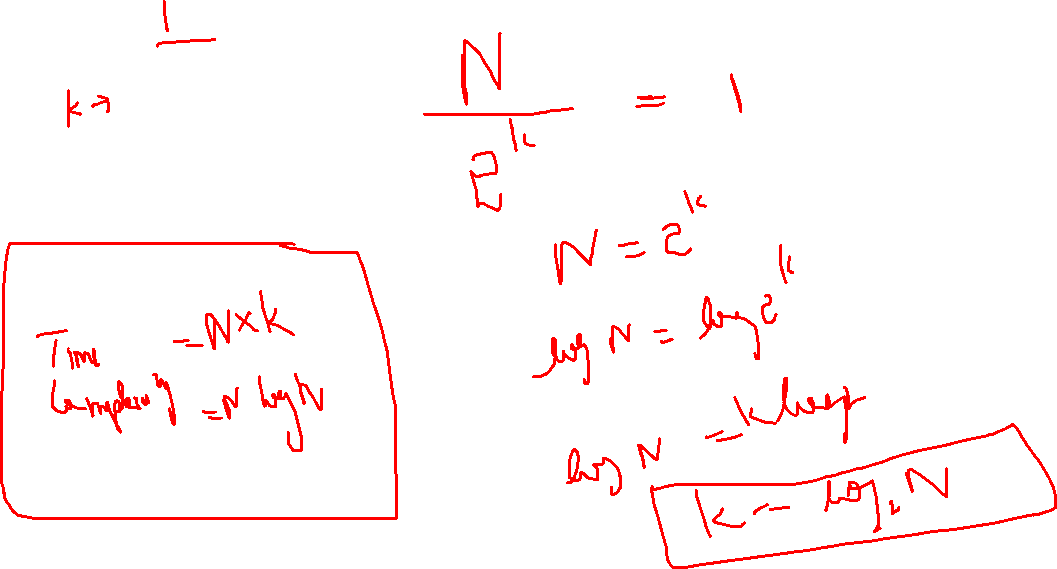 1
k →
N / 2^k = 1
N = 2^k
log N = log 2^k
log N = k log 2
k = log₂ N
Time = N × k
Complexity = N log N